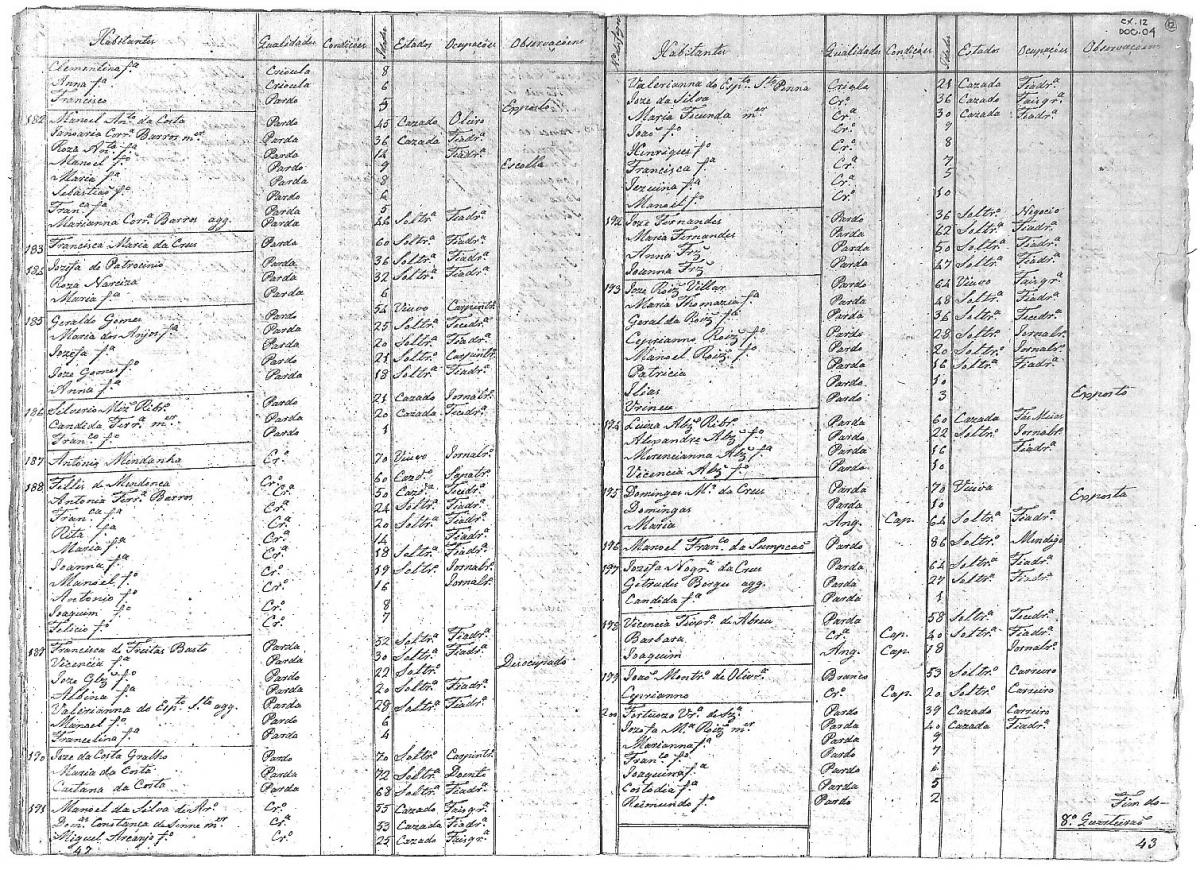 Habitantes Qualidades Condições Idades Estados Ocupações Observaçoens
Clementina fª Crioula 8
Anna fª Crioula 6
Francisco Pardo 5 Exposto
182 Manoel Antº da Costa Pardo 45 Cazado Oleiro
Januaria Corrª Barros mer Parda 36 Cazada Fiadrª
Roza Antª fª Parda 14 Fiadrª
Manoel fº Pardo 9 Escolla
Maria fª Parda 8
Sebastiaõ fº Pardo 6
Franca fª Parda 5
Marianna Corrª Barros agg. Parda 44 Soltrª Fiadrª
183 Francisca Maria da Crus Parda 60 Soltrª Fiadrª
184 Jozefa do Patrocinio Parda 36 Soltrª Fiadrª
Roza Narciza Parda 32 Soltrª Fiadrª
Maria fª Parda 6
185 Geraldo Gomes Pardo 54 Viuvo Carpintrº
Maria dos Anjos fª Parda 25 Soltrª Tecedrª
Jozefa fª Parda 20 Soltrª Fiadrª
Joze Gomes fº Pardo 21 Soltrº Carpintrº
Anna fª Parda 18 Soltrª Fiadrª
186 Silverio Miz Ribrº Pardo 21 Cazado Jornalrº
Candida Ferrª mer Parda 20 Cazada Tecedrª
Franco fº Pardo 1
187 Antonio Mendanha Crº 70 Viuvo Jornalrº
188 Fellis de Mendonca Crº 60 Cazdº Sapatrº
Antonia Ferrª Barros Crª 50 Cazdª Tecedrª
Franca fª Crª 24 Soltrª Fiadrª
Rita fª Crª 20 Soltrª Fiadrª
Maria fª Crª 14 Fiadrª
Joanna fª Crª 18 Soltrª Fiadrª
Manoel fº Crº 19 Soltrº Jornalrº
Antonio fº 16 Jornalrº
Joaquim fº Crº 8
Felicio fº Crº 7
189 Francisca de Freitas Basto Parda 52 Soltrª Fiadrª
Vicencia fª Parda 30 Soltrª Fiadrª
Joze Glz fº Pardo 22 Soltrº Dezocupado
Albina fª Parda 20 Soltrª Fiadrª
Valerianna do Espto Sto agg. Parda 28 Soltrª Fiadrª
Manoel fº Pardo 6
Francelina fª Parda 4
190 Joze da Costa Gralho Pardo 70 Soltrº Carpintrº
Maria da Costa Parda 72 Soltrª Doente
Caetana da Costa Parda 68 Soltrª Fiadrª
191 Manoel da Silva de Crº 55 Cazado Faisgrº
Constança de Senna mer Crª 53 Cazada Fiadrª
Miguel Arcanjo fº Crº 25 Cazado Faisgrº
42
CX. 12
DOC. 04
12
Habitantes Qualidades Condições Idades Estados Ocupações Observaçoens
Valerianna do Espto Sto Penna Criola 21 Cazada Fiadrª
Joze da Silva Crº 36 Cazado Faisgrº
Maria Fecunda mer Crª 30 Cazada Fiadrª
Joaõ fº Crº 9
Henriques fº Crº 8
Francisca fª Crª 7
Jezuina fª Crª 5
Manoel fº Crº 10
192 Joze Fernandes Pardo 36 Soltrº Negocio
Maria Fernandes Parda 62 Soltrª Fiadrª
Anna Frz Parda 50 Soltrª Fiadrª
Joanna Frz Parda 47 Soltrª Fiadrª
193 Joze Roiz Villar Pardo 64 Viuvo Faisgrº
Maria Thomazia fª Parda 48 Soltrª Fiadrª
Geralda Roiz fª Parda 36 Soltrª Tecedrª
Ceprianno Roiz fº Pardo 28 Soltrº Jornalrº
Manoel Roiz fº Pardo 20 Soltrº Jornalrº
Patricia Parda 16 Soltrª Fiadrª
Ilias Pardo 10
Urineo Pardo 3 Exposto
194 Luiza Alz Ribrº Parda 60 Cazada Fas Meias
Alexandre Alz fº Pardo 22 Soltrº Jornalrº
Merencianna Alz fª Parda 16 Fiadrª
Vicencia Alz fª Parda 10
195 Domingas Mª da Crus Parda 70 Viuva
Domingas Parda 10 Exposta
Maria Ang. Cap. 64 Soltrª Fiadrª
196 Manoel Franco da Sumpcaõ Pardo 86 Soltrº Mendigo
197 Jozefa Nogrª da Crus Parda 64 Soltrª Fiadrª
Getrudes Borges agg. Parda 27 Soltrª Fiadrª
Candida fª Parda 1
198 Vicencia de Abreu Parda 58 Soltrª Tecedrª
Barbara Crª Cap. 40 Soltrª Fiadrª
Joaquim Ang. Cap. 18 Jornalrº
199 Joaõ Montrº de Olivrª Branco 53 Soltrº Carreiro
Ceprianno Crº Cap. 20 Soltrº Carreiro
200 Fortuozo Vrª de Pardo 39 Cazado Carreiro
Jozefa Mª Roiz mer Parda 40 Cazada Fiadrª
Marianna fª Parda 9
Franco fº Pardo 7
Joaquina fª Parda 6
Custodia fª Parda 5
Reimundo fº Pardo 2
Fim do
8º Quarteiraõ
43